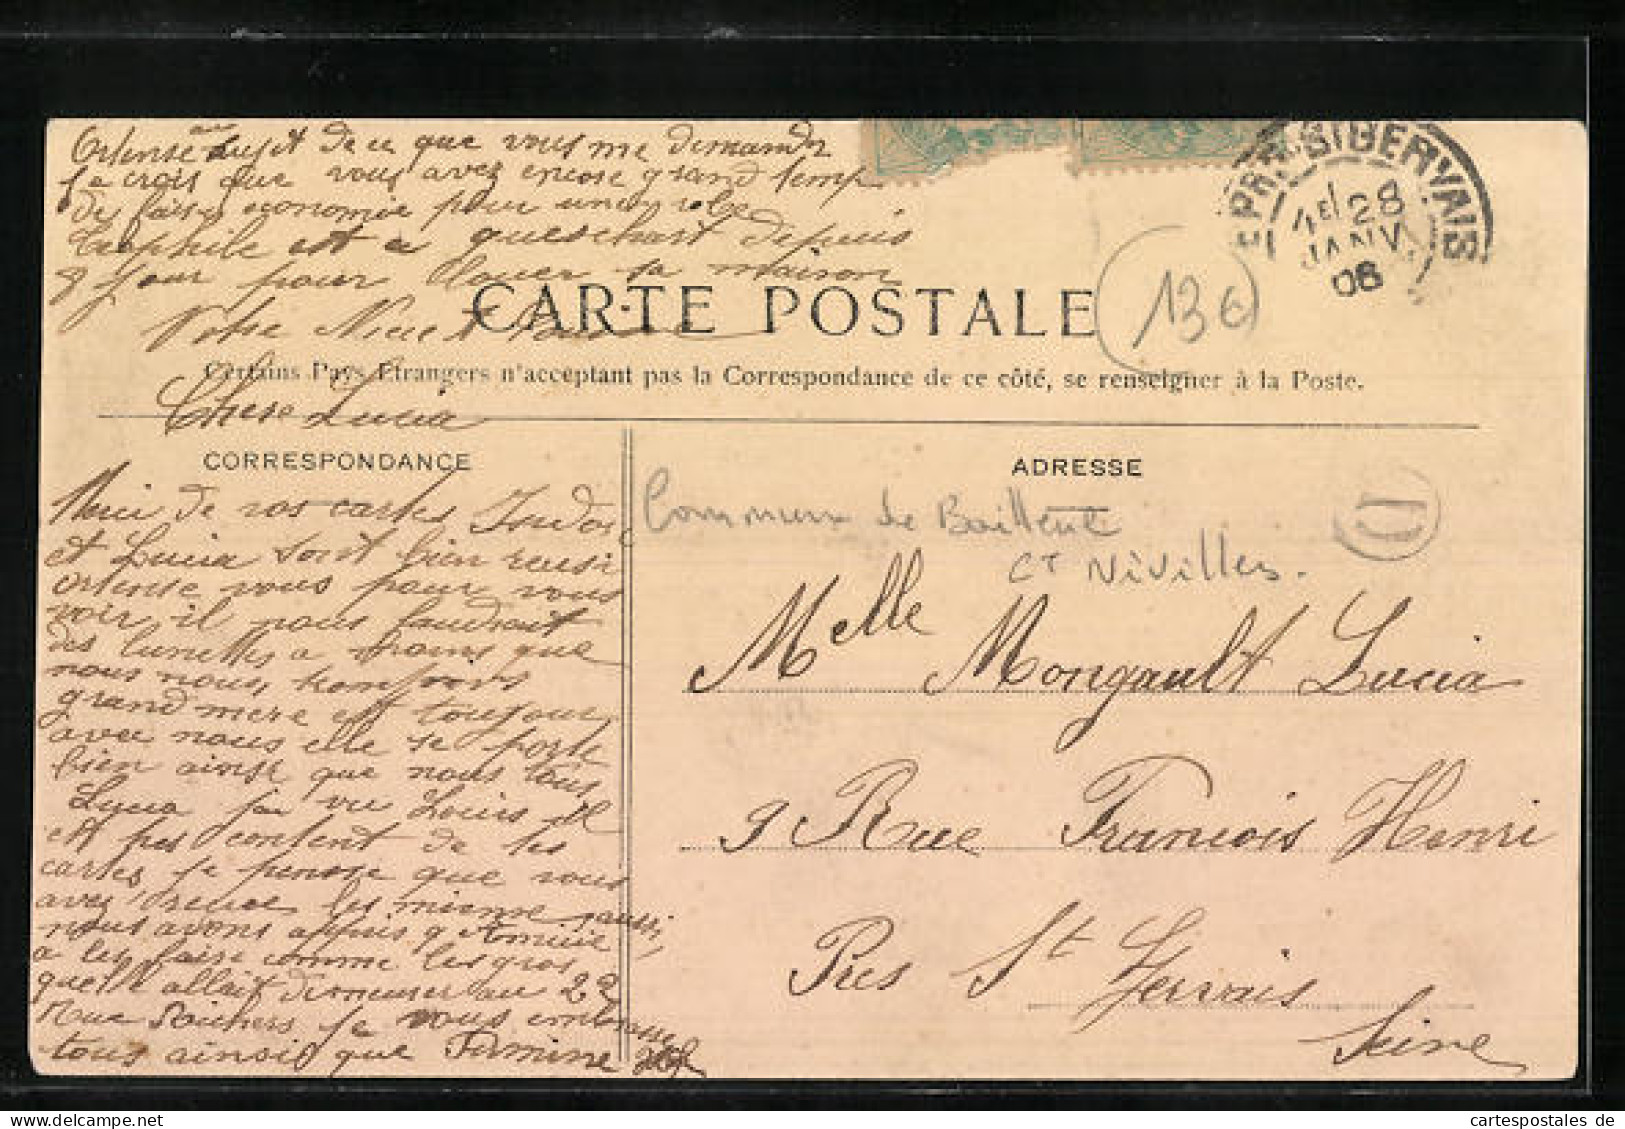 Ortense au sujet de ce que vous me demander
Je crois que vous avez encore grand temp
de faire economie pour une robe
Teophile est a depuis
9 jour pour louer sa maison
Votre Niece
CARTE POSTALE
13 €
LE PRE-St GERVAIS
4E 28
JANV.
06
Certains Pays Etrangers n'acceptant pas la Correspondance de ce côté, se renseigner à la Poste.
Chere Lucia
CORRESPONDANCE
ADRESSE
Merci de vos cartes
et Lucia sont bien reusi
ortense vous pour vous
voir il nous faudrait
des lunettes a moins que
nous nous
grand mere est toujours
avec nous elle se porte
bien ainsi que nous tous
Lucia j'ai vu Louis il
et pas content de tes
cartes je pensse que vous
avez les mieme aussi
nous avons appris q
a les faire comme les gros
quelle allait demeurer au 22
Rue Je vous embrasse
tous ainsi que Firmine
Commune de
Ct Nivillers.
Melle Mongault Lucia
9 Rue Francois Henri
Pres St Gervais
Seine
cartespostales de
www.cartespostales.de